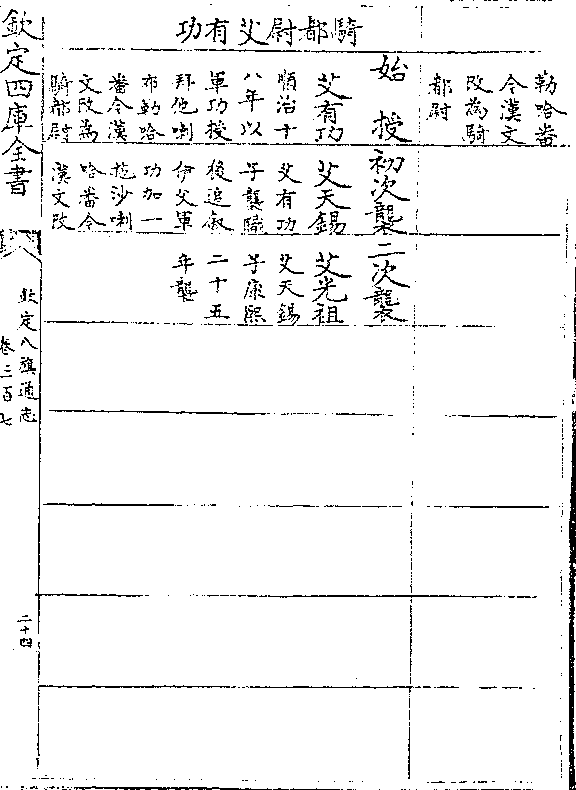 勒哈番
今漢文
改為騎
都尉
騎都尉艾有功
始授
艾有功
順治十
八年以
軍功授
拜他喇
布勒哈
番今漢
文改為
騎都尉
初次襲
艾天錫
艾有功
子襲職
後追敘
伊父軍
功加一
拖沙喇
哈番今
漢文改
二次襲
艾光祖
艾天錫
子康熙
二十五
年襲
欽定四庫全書
欽定八旗通志
卷三百七
二十四